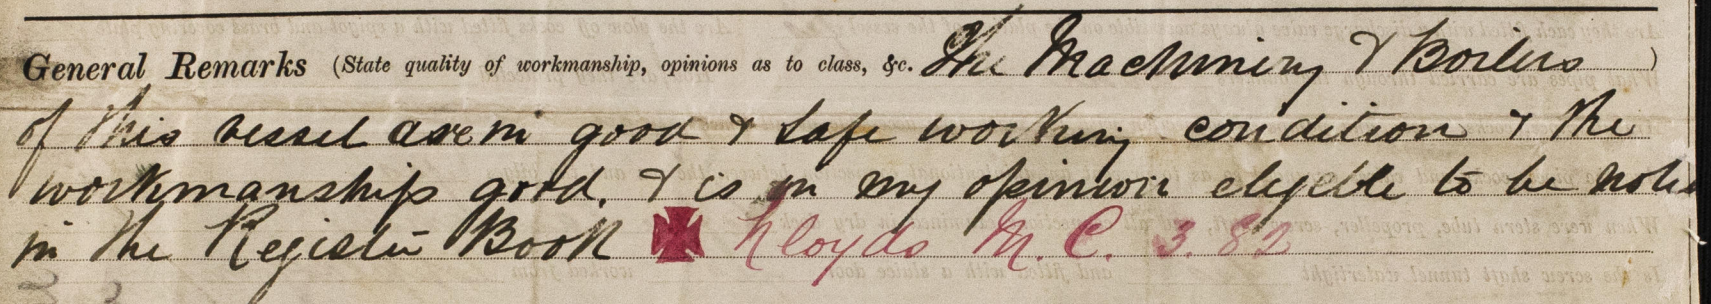 General Remarks (State quality of workmanship, opinions as to class, &c. The Machinery & Boilers )
of this vessel are in good & safe working condition & the
workmanship good. & is in my opinion eligible to be noted
in the Register Book ✠ Lloyds M. C. 3. 82